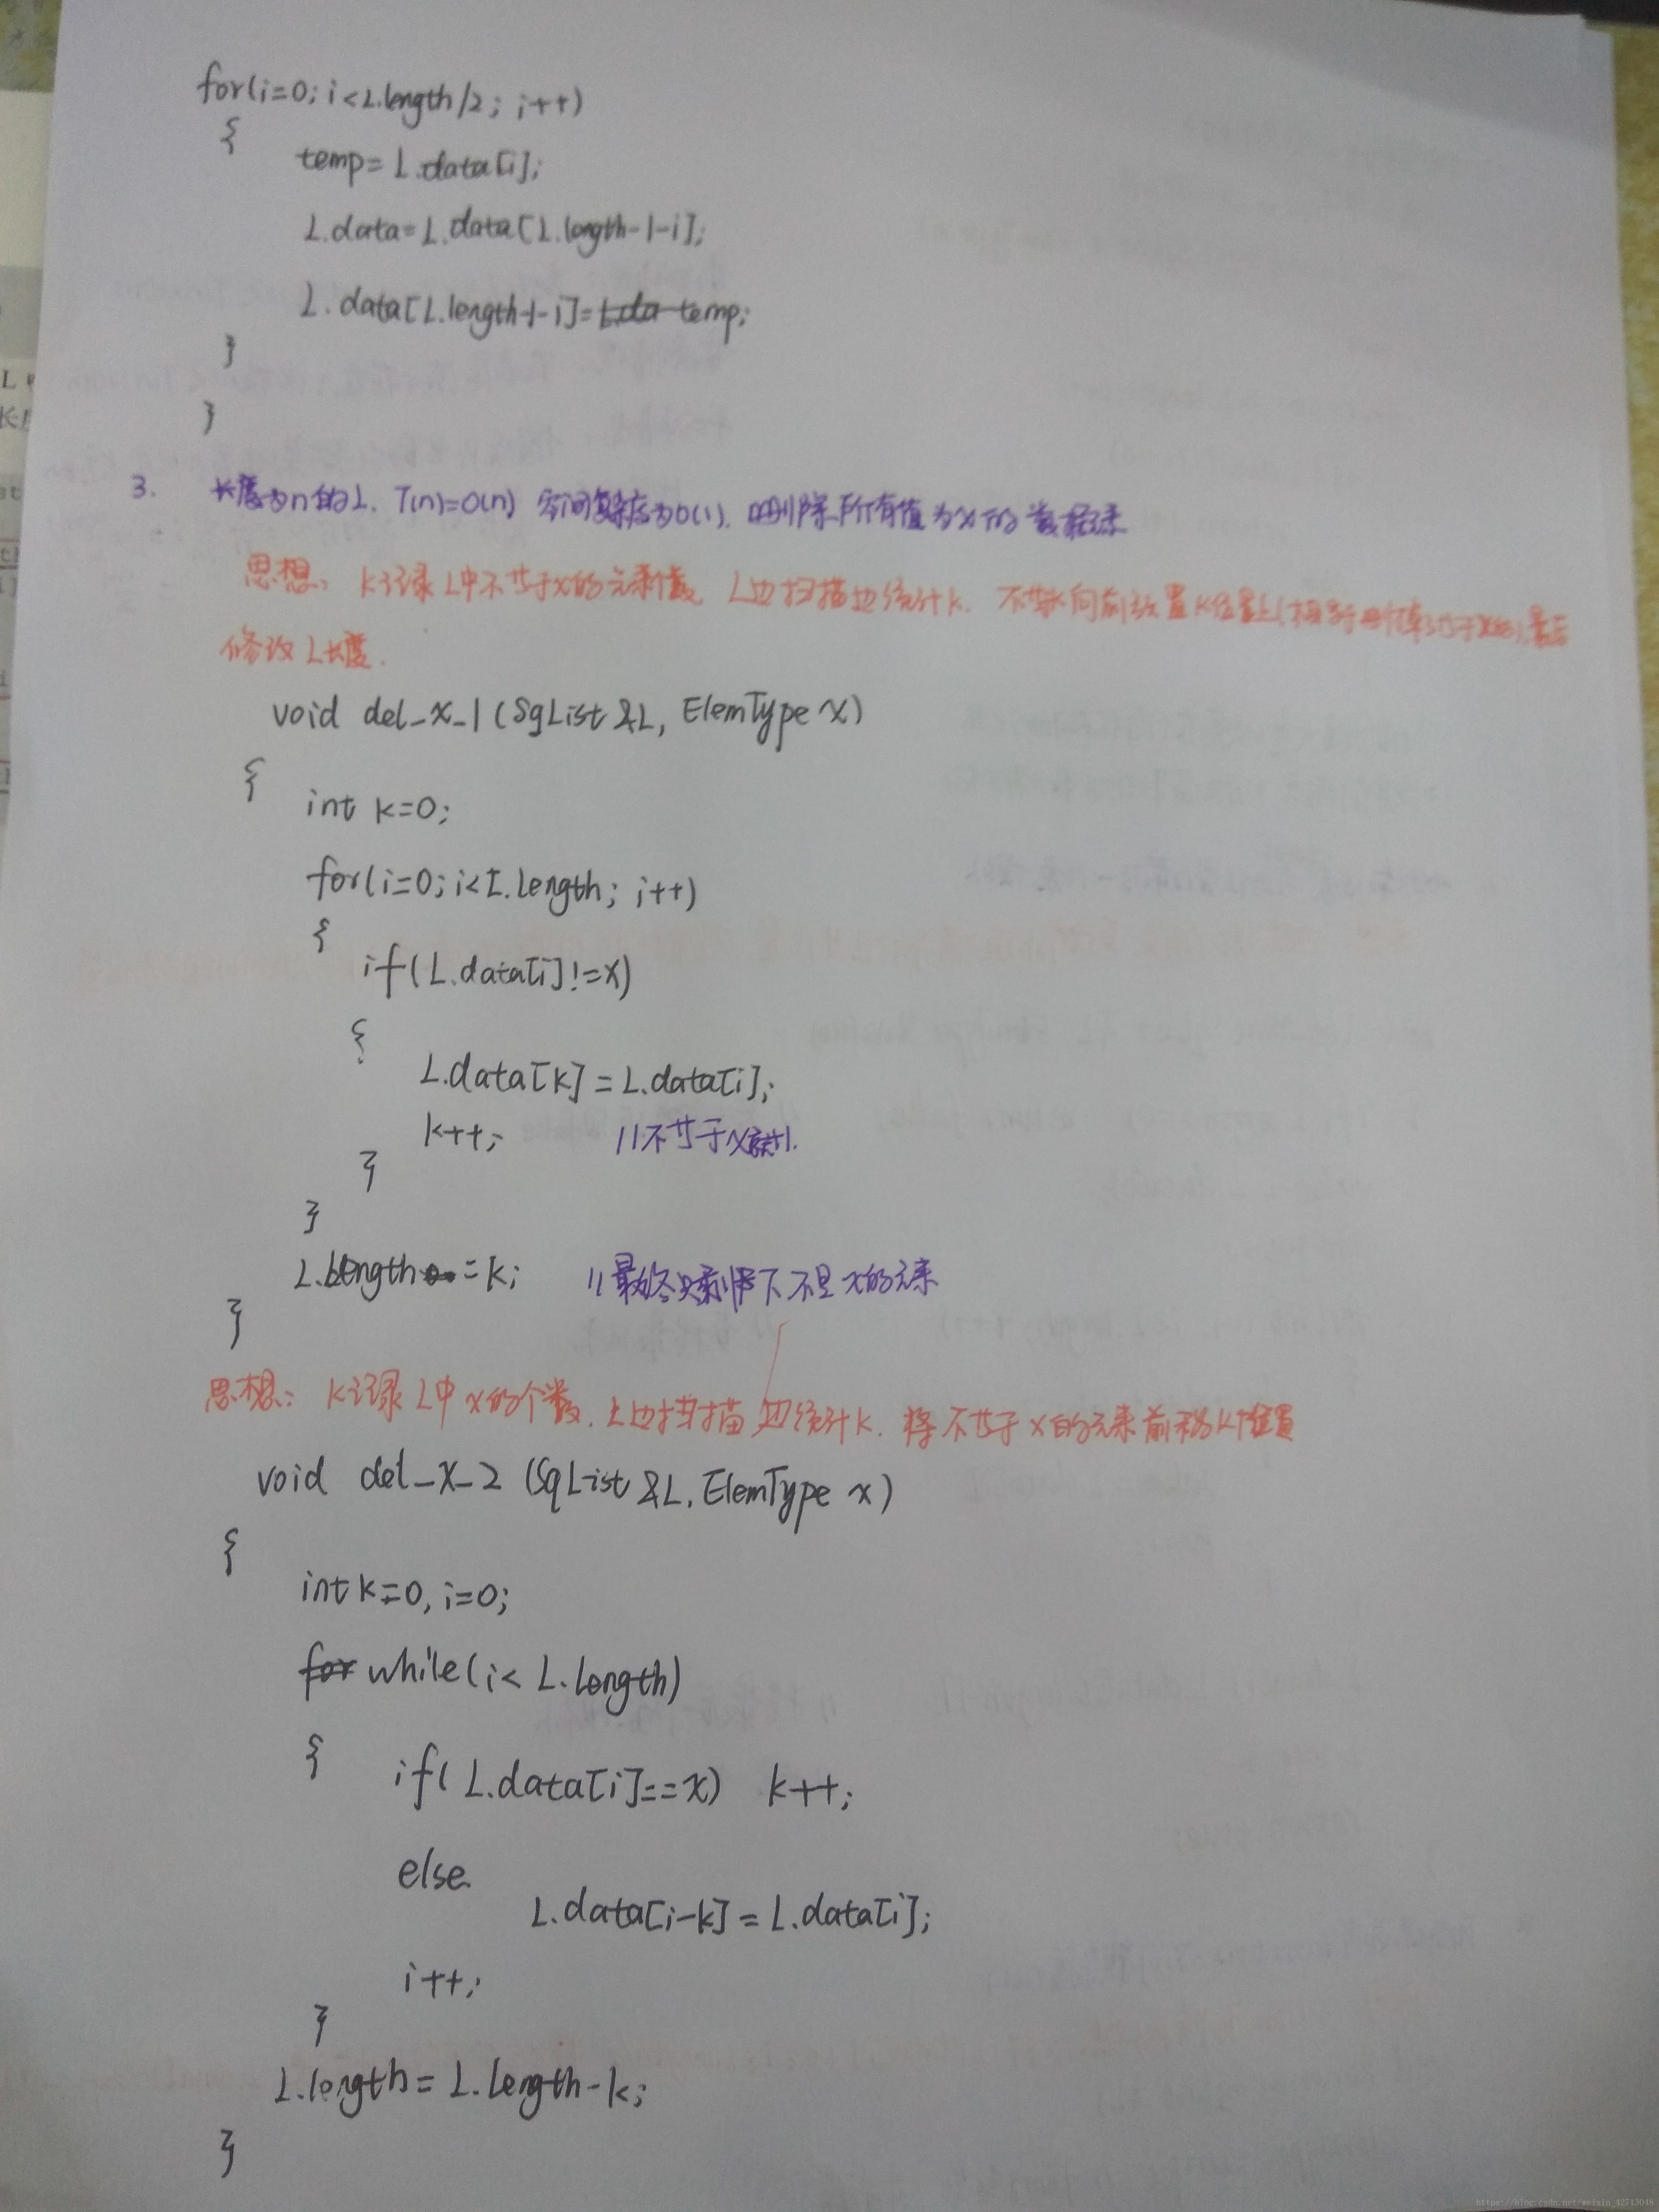 for(i=0; i<L.length/2; i++)
{
temp= L.data[i];
L.data=L.data[L.length-1-i];
L.data[L.length-1-i]=L.da temp;
}
}
3. 长度为n的L, T(n)=O(n) 空间复杂度为O(1). 删除所有值为x的数据元素
思想: k记录L中不等于x的元素个数. L边扫描边统计k. 不等x向前放置k位置上 最后
修改L长度.
void del-x-1 (SqList &L, ElemType x)
{
int k=0;
for(i=0; i<L.length; i++)
{
if(L.data[i]!=x)
{
L.data[k]=L.data[i];
k++; //不等于x就+1.
}
}
L.length=k; //最终只剩下不是x的元素
}
思想: k记录L中x的个数. L边扫描边统计k. 将不等于x的元素前移k个位置
void del-x-2 (SqList &L, ElemType x)
{
int k=0, i=0;
for while(i< L.length)
{ if( L.data[i]==x) k++;
else
L.data[i-k]=L.data[i];
i++;
}
L.length= L.length-k;
}
https://blog.csdn.net/weixin_42713048